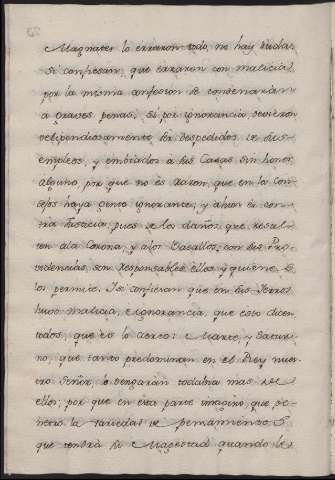 Magnates lo erraron todo, no hay duda:
si confiesan, que erraron con malicia,
por la misma confesion se condenarian
a graves penas; si por ignorancia, devieron
vilipendiosamente ser despedidos de sus
empleos, y embiados a sus Casas sin honor
alguno, por que no es razon, que en los Con
sejos haya gente ignorante; y ahun es con
tra Justicia, pues de los daños que resul
ten ala Corona, y alos Vasallos, con sus Pro
videncias, son responsables ellos y quien se
los permite. I si confiesan que en sus Ierros
huvo malicia, e ignorancia, que esto dicen
todos, que es lo cierto: Marte, y Satur
no, que tanto predominan en el Rey nues
tro Señor, lo vengaran todabia mas de
ellos; por que en esta parte imagino, que
la variedad de pensamientos
que tendrá su Magestad quando le